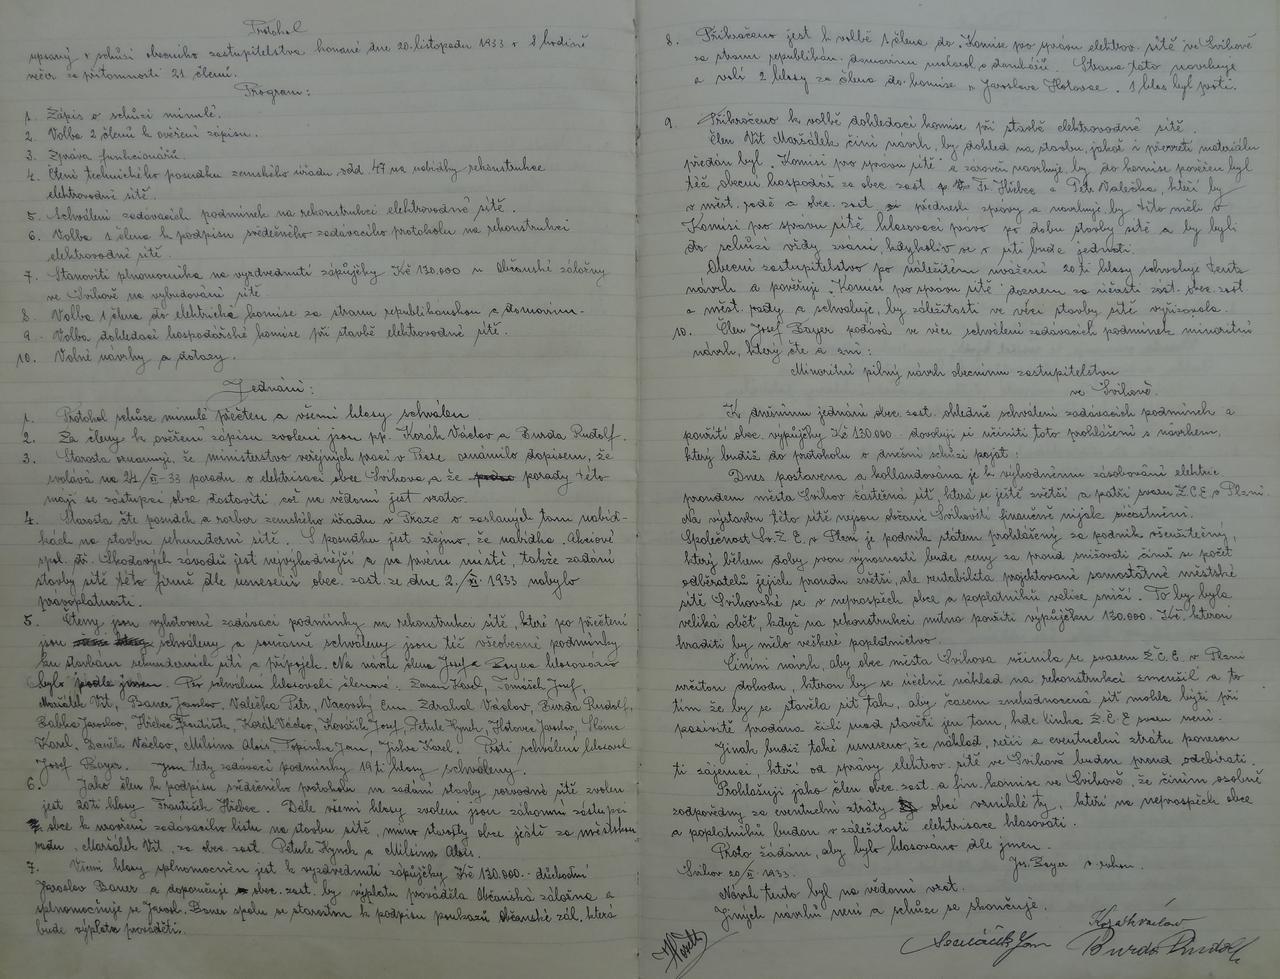 Protokol
upsaný o schůzi obecního zastupitelstva konané dne 20. listopadu 1933 o 8 hodině
večer za přítomnosti 21 členů.
Program:
1. Zápis o schůzi minulé.
2. Volba 2 členů k ověření zápisu.
3. Zpráva funkcionářů.
4. Čtení technického posudku zemského úřadu odd. 47 na nabídky rekonstrukce
elektrovodní sítě.
5. Schválení zadávacích podmínek na rekonstrukci elektrovodné sítě.
6. Volba 1 člena k podpisu svědečného zadávacího protokolu na rekonstrukci
elektrovodné sítě.
7. Stanoviti plnomocníka na vyzdvednutí zápůjčky Kč 130.000 u Občanské záložny
ve Švihově na vybudování sítě.
8. Volba 1 člena do elektrické komise za stranu republikánskou a domovin.
9. Volba dohledací hospodářské komise při stavbě elektrovodné sítě.
10. Volné návrhy a dotazy.
Jednání:
1. Protokol schůze minulé přečten a všemi hlasy schválen.
2. Za členy k ověření zápisu zvoleni jsou pp. Korák Václav a Burda Rudolf.
3. Starosta oznamuje, že ministerstvo veřejných prací v Praze oznámilo dopisem, že
svolává na 24/XI-33 poradu o elektrisaci obce Švihova, a že porady této
mají se zástupci obce dostaviti což na vědomí jest vzato.
4. Starosta čte posudek a rozbor zemského úřadu v Praze o zaslaných tam nabíd-
kách na stavbu sekunderní sítě. Z posudku jest zřejmo, že nabídka Akciové
spol. dř. Škodových závodů jest nejvýhodnější a na prvém místě, takže zadání
stavby sítě této firmě dle usnesení obec. zast. ze dne 2./XI. 1933 nabylo
pravoplatnosti.
5. Čteny jsou vyhotovené zadávací podmínky na rekonstrukci sítě, které po přečtení
jsou schváleny a současně schváleny jsou též všeobecné podmínky
ku stavbám sekunderních sítí a přípojek. Na návrh člena Josefa Bayera hlasováno
bylo podle jmen. Pro schválení hlasovali členové: Zaran Karel, Tomášek Josef,
Maršálek Vít, Bauer Jaroslav, Valečka Petr, Vacovský Em., Zdrahal Václav, Burda Rudolf,
Babka Jaroslav, Hřebec František, Korák Václav, Kovářík Josef, Petule Hynek, Hotovec Jaroslav,
Karel, Daněk Václav, Milsimr Alois, Topinka Jan, Jirka Karel. Proti schválení hlasoval
Josef Bayer. Jsou tedy zadávací podmínky 19ti hlasy schváleny.
6. Jako člen k podpisu svědečného protokolu na zadání stavby rozvodné sítě zvolen
jest 20ti hlasy František Hřebec. Dále všemi hlasy zvoleni jsou zákonní zástupci
obce k uzavření zadávacího listu na stavbu sítě, mimo starosty obce ještě za městskou
radu, Maršálek Vít, za obec. zast. Petule Hynek a Milsimr Alois.
7. Všemi hlasy splnomocněn jest k vyzdvednutí zápůjčky Kč 130.000.- důchodní
Jaroslav Bauer a doporučuje obec. zast. by výplatu prováděla Občanská záložna a
splnomocňuje se Jarosl. Bauer spolu se starostou k podpisu poukazů Občanské zál. která
bude výplatu prováděti.
8. Přikročeno jest k volbě 1 člena do "Komise pro správu elektrov. sítě ve Švihově
za stranu republikán. domovinu Strana tato navrhuje
a volí 2 hlasy za člena do komise p. Jaroslava Hotovce. 1 hlas byl proti.
9. Přikročeno k volbě dohledací komise při stavbě elektrovodné sítě.
Člen Vít Maršálek činí návrh, by dohled na stavbu, jakož i převzetí materiálu
předán byl "Komisi pro správu sítě" a zároveň navrhuje, by do komise pověřen byl
též obecní hospodář za obec. zast. p. Fr. Hřebec a Petr Valečka, kteří by
v měst. radě a obec. zast. přednesli zprávy a navrhuje, by tito měli v
Komisi pro správu sítě hlasovací právo po dobu stavby sítě a by byli
do schůzí vždy zváni kdykoliv se o síti bude jednati.
Obecní zastupitelstvo po náležitém uvážení 20ti hlasy schvaluje tento
návrh a pověřuje "Komisi pro správu sítě" dozorem za účasti zást. obec. zast.
a měst. rady a schvaluje, by záležitosti ve věci stavby sítě vyřizovala.
10. Člen Josef Bayer podává ve věci schválení zadávacích podmínek minoritní
návrh, který čte a zní:
Minoritní pilný návrh obecnímu zastupitelstvu
ve Švihově.
K dnešnímu jednání obec. zast. ohledně schválení zadávacích podmínek a
použití obec. výpůjčky Kč 130.000.- dovoluji si učiniti toto prohlášení s návrhem,
který budiž do protokolu o dnešní schůzi pojat:
Dnes postavena a kollaudována je k výhodnému zásobování elektric.
proudem města Švihov částečná síť, která se ještě zvětší a patří svazu Z.Č.E. v Plzni.
Na výstavbu této sítě nejsou občané Švihovští finančně nijak súčastněni.
Společnost Sv. Z.E. v Plzni je podnik státem prohlášený za podnik všeužitečný,
který během doby svou výnosností bude ceny za proud snižovati čímž se počet
odběratelů jejich proudu zvětší, ale rentabilita projektované samostatné městské
sítě Švihovské se v neprospěch obce a poplatníků velice sníží. To by byla
veliká oběť, když na rekonstrukci nutno použíti výpůjčku 130.000.- Kč, kterou
hraditi by mělo veškeré poplatnictvo.
Činím návrh, aby obec města Švihova učinila se svazem Z.Č.E. v Plzni
určitou dohodu, kterou by se účelně náklad na rekonstrukci zmenšil a to
tím že by se stavěla síť tak, aby časem znehodnocená síť mohla býti při
pasivitě prodána čili snad stavěti jen tam, kde linka Z.Č.E svazu není.
Jinak budiž také usneseno, že náklad, režii a eventuelní ztrátu ponesou
ti zájemci, kteří od správy elektrov. sítě ve Švihově budou proud odebírati.
Prohlašuji jako člen obec. zast. a fin. komise ve Švihově, že činím osobně
zodpovědny za eventuelní ztráty obci vzniklé ty, kteří na neprospěch obce
a poplatníků budou v záležitosti elektrisace hlasovati.
Proto žádám, aby bylo hlasováno dle jmen.
Švihov 20/XI. 1933. Jos. Bayer v. rukou.
Návrh tento byl na vědomí vzat.
Jiných návrhů není a schůze se skončuje.
Korák Václav
Burda Rudolf